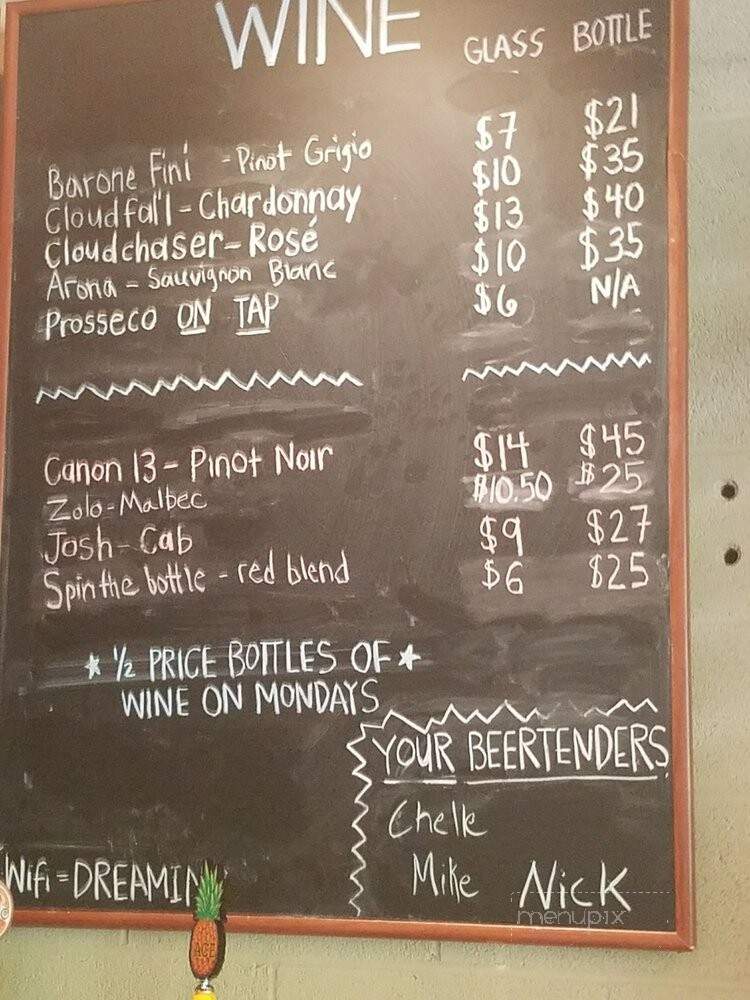 WINE GLASS BOTTLE
Barone Fini - Pinot Grigio $7 $21
Cloudfall - Chardonnay $10 $35
Cloudchaser - Rosé $13 $40
Arona - Sauvignon Blanc $10 $35
Prosseco ON TAP $6 N/A
Canon 13 - Pinot Noir $14 $45
Zolo - Malbec $10.50 $25
Josh - Cab $9 $27
Spin the bottle - red blend $6 $25
★ ½ PRICE BOTTLES OF ★
WINE ON MONDAYS
YOUR BEERTENDERS
Chelle
Mike Nick
Wifi = DREAMIN
ACE
menupix